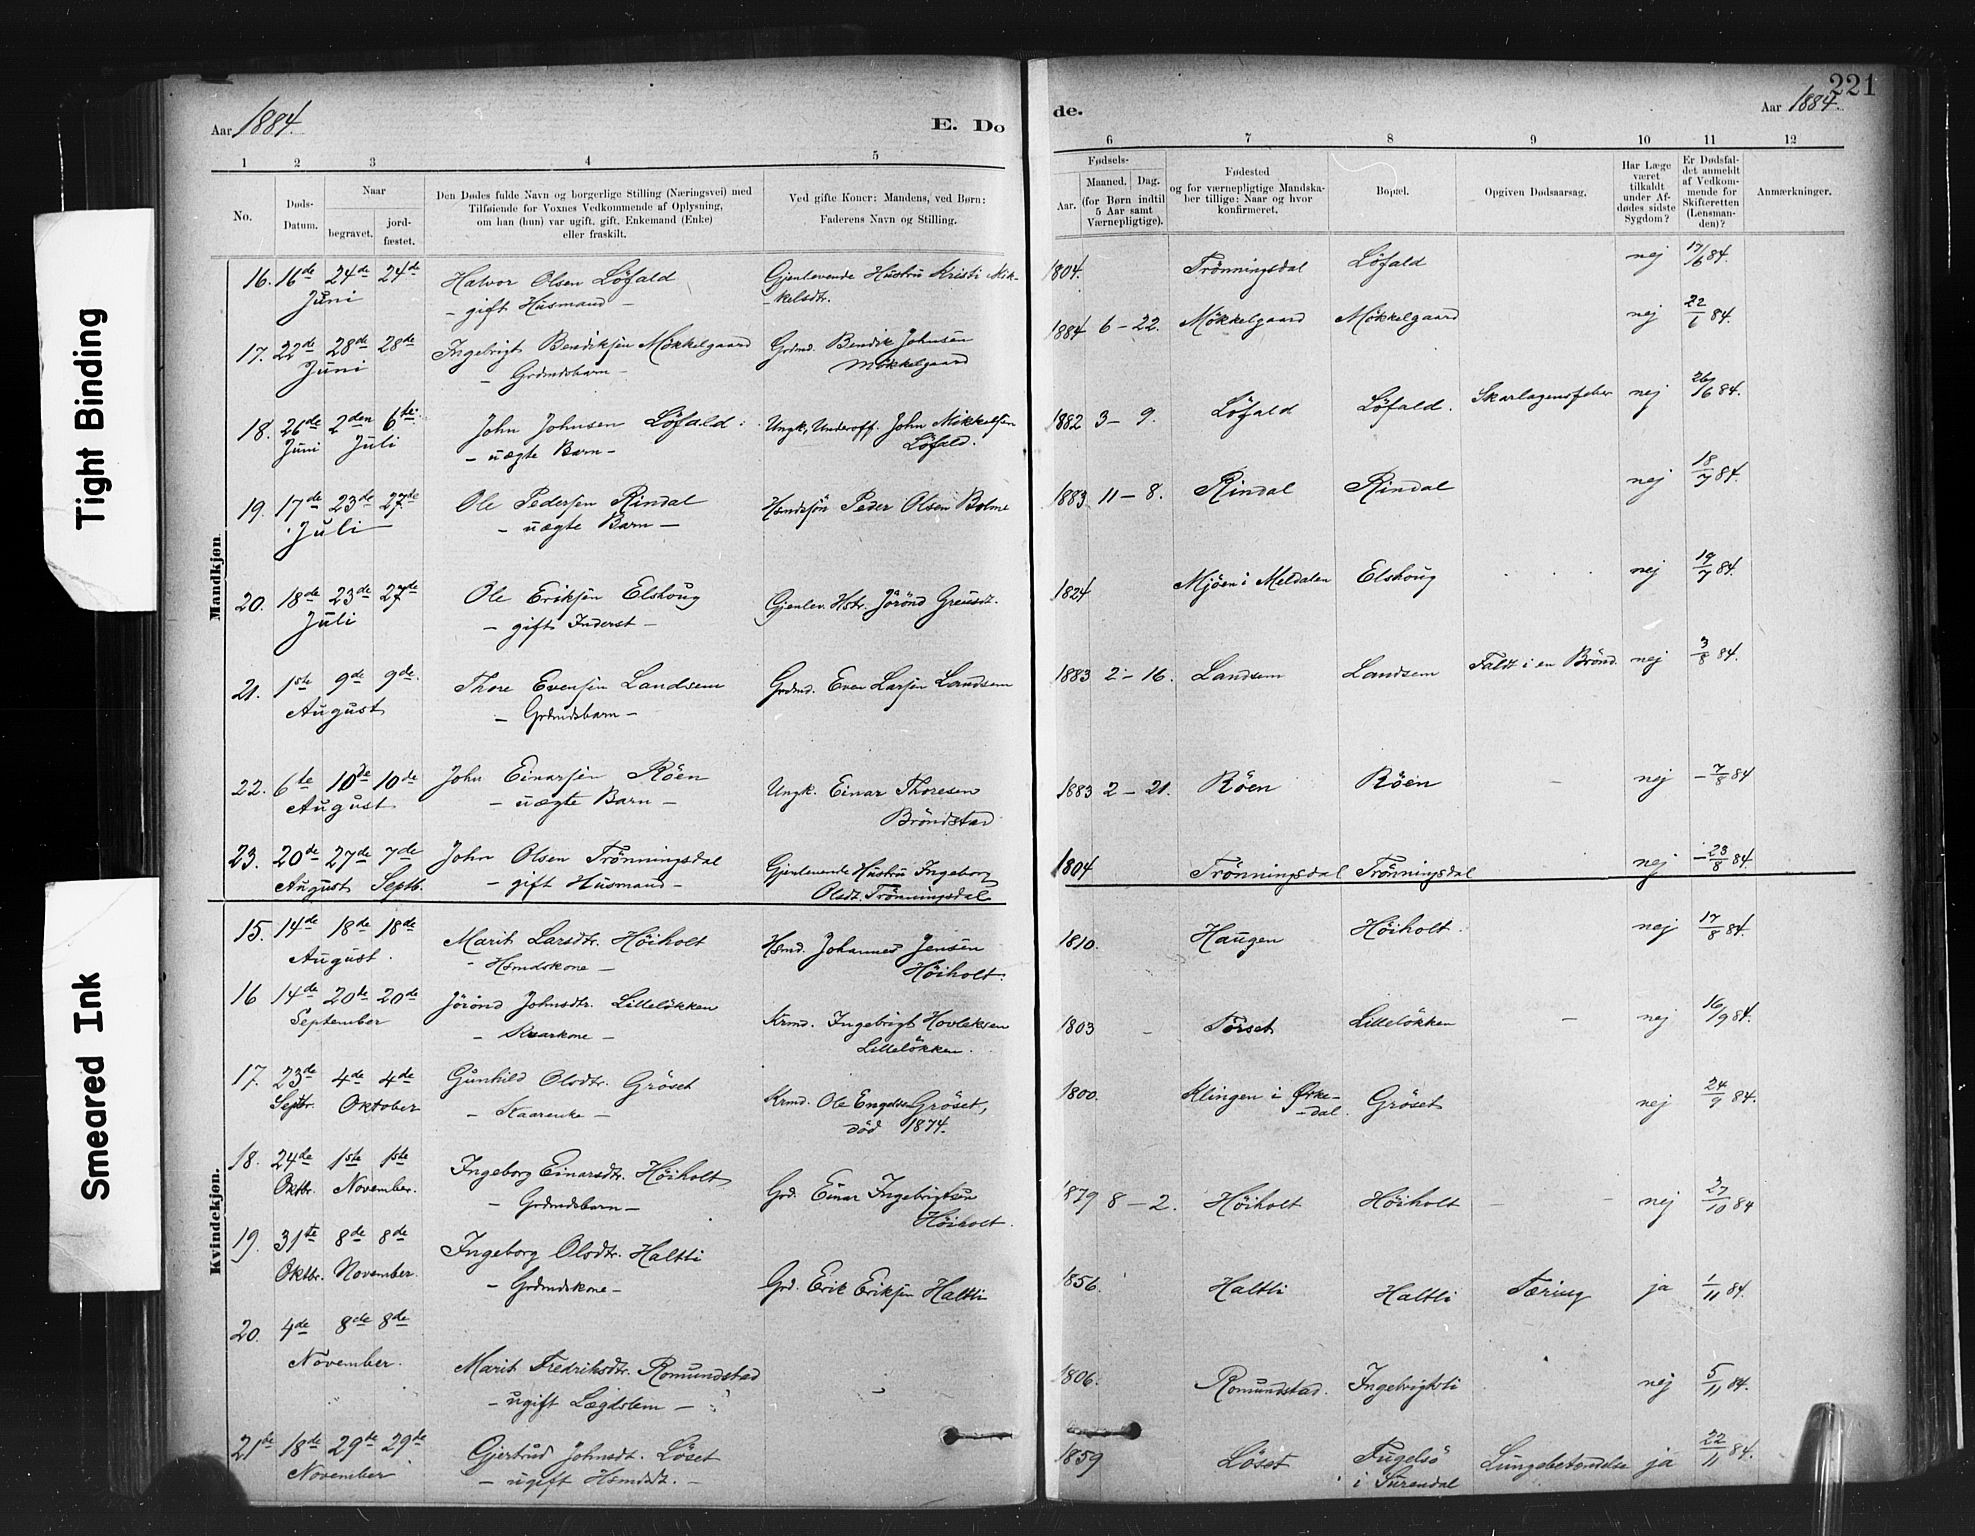 221
Aar 1884.
E. Døde.
Aar 1884.
1 2 3 4 5 6 7 8 9 10 11 12
No.
Døds-Datum.
Naar
begravet.
jordfæstet.
Den Dødes fulde Navn og borgerlige Stilling (Næringsvei) med
Tilføiende for Voxnes Vedkommende af Oplysning,
om han (hun) var ugift, gift, Enkemand (Enke)
eller fraskilt.
Ved gifte Koner: Mandens, ved Børn:
Faderens Navn og Stilling.
Fødsels-
Aar.
Maaned. Dag.
(for Børn indtil
5 Aar samt
Værnepligtige).
Fødested
og for værnepligtige Mandska-
ber tillige: Naar og hvor
konfirmeret.
Bopæl.
Opgiven Dødsaarsag.
Har Læge
været
tilkaldt
under Af-
dødes sidste
Sygdom?
Er Dødsfal-
det anmeldt
af Vedkom-
mende for
Skifteretten
(Lensman-
den)?
Anmærkninger.
Mandkjøn.
16. 16de 24de 24de Halvor Olsen Löfald Gjenlevende Hustru Kristi Mik- 1804. Trönningsdal Löfald nej 17/6 84.
Juni - gift Husmand - -kelsdtr.
17. 22de 28de 28de Ingebrigt Bendiksen Mökkelgaard Grdmd. Bendik Johnsen 1884 6 - 22. Mökkelgaard Mökkelgaard nej 22/6 84.
Juni - Grdmdsbarn - Mökkelgaard
18. 26de 2den 6te John Johnsen Löfald Ungk. Underoff. John Mikkelsen 1882 3 - 9. Löfald Löfald. Skarlagensfeber nej 26/6 84.
Juni Juli - uægte Barn - Löfald.
19. 17de 23de 27de Ole Pedersen Rindal Hsmdsön Peder Olsen Bolme 1883 11 - 8. Rindal Rindal nej 18/7 84.
Juli - uægte Barn -
20. 18de 23de 27de Ole Eriksen Elshoug Gjenlev. Hstr. Jörönd 1824 Mjöen i Meldalen Elshoug nej 19/7 84.
Juli - gift Inderst -
21. 1ste 9de 9de. Thore Evensen Landsem Grdmd. Even Larsen Landsem 1883 2 - 16. Landsem Landsem Faldt i en Brönd. nej 3/8 84.
August - Grdmdsbarn -
22. 6te 10de 10de John Einarsen Röen Ungk. Einar Thoresen 1883 2 - 21. Röen Röen nej 7/8 84
August - uægte Barn - Bröndstad
23. 20de 27de 7de John Olsen Trönningsdal Gjenlevende Hustru Ingeborg 1804 Trönningsdal Trönningsdal nej 23/8 84.
August Septb. - gift Husmand - Olsdt. Trönningsdal
Kvindekjøn.
15. 14de 18de 18de Marit Larsdtr. Höiholt Hsmd. Johannes Jensen 1810. Haugen Höiholt. nej 17/8 84.
August. - Hsmdskone - Höiholt.
16 14de 20de 20de Jörönd Johnsdtr. Lillelökken Krmd. Ingebrigt Hovleksen 1803 - Törset Lillelökken - nej 16/9 84.
September - Kaarkone - Lillelökken.
17. 23de 4de 4de Gunhild Olsdtr. Gröset Krmd. Ole Gröset, 1800. Klingen i Ørke- Gröset nej 24/9 84.
Septbr. Oktober - Kaarenke - död 1874. -dal.
18. 24de 1ste 1ste Ingeborg Einarsdtr. Höiholt Grd. Einar Ingebrigtsen 1879 8 - 2. Höiholt Höiholt - nej 27/10 84
Oktbr. November. - Grdmdsbarn - Höiholt.
19. 31te 8de 8de Ingeborg Olsdtr. Haltli Grd. Erik Eriksen Haltli 1856. Haltli Haltli Tæring ja 1/11 84.
Oktbr. November. - Grdmdskone -
20. 4de 8de 8de
November. Marit Fredriksdtr. Romundstad - 1806. Romundstad. Ingebrigtsli nej 5/11 84.
- ugift Lægdslem -
21de 18de 29de 29de Gjertrud Johnsdt. Löset 1859 Löset Fugelsö Lungebetændelse ja 22/11 84.
November - ugift Hsmdsdt. - i Surendal
Tight Binding
Smeared Ink